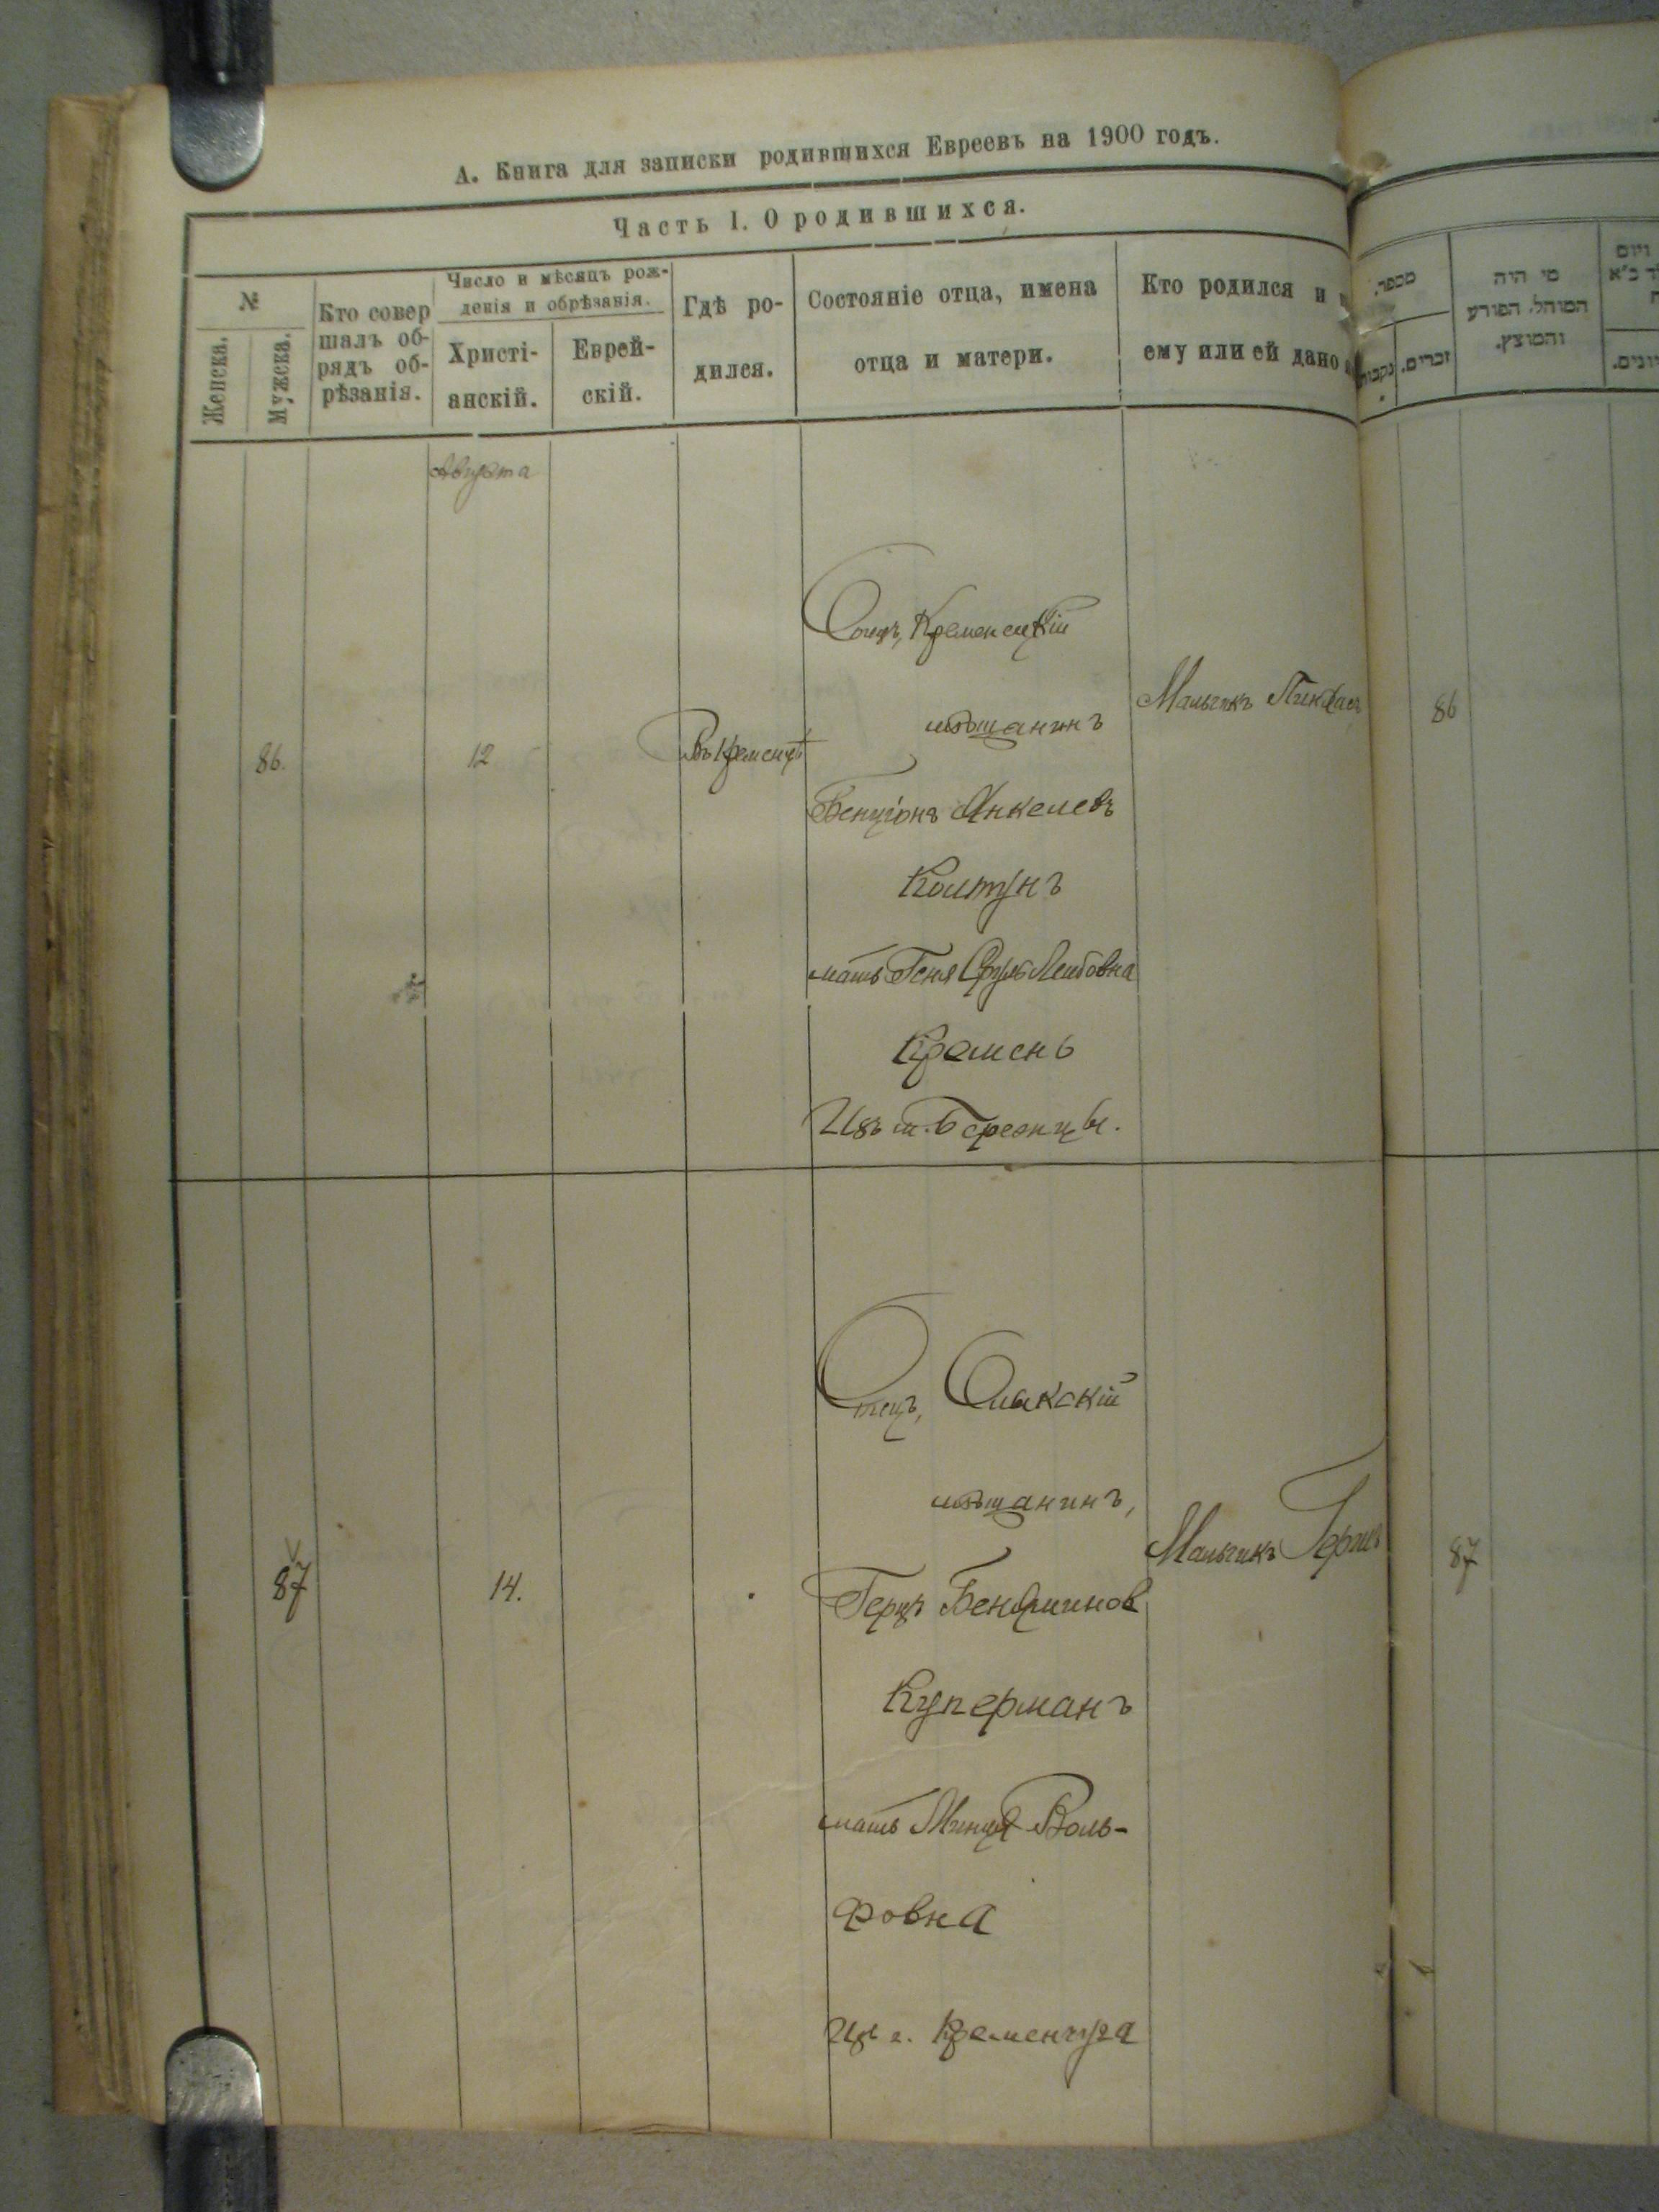 А. Книга для записки родившихся Евреевъ на 1900 годъ.
Часть I. О родившихся.
№
Женска.
Мужска.
Кто совер
шалъ об-
рядъ об-
рѣзанія.
Число и мѣсяцъ рож-
денія и обрѣзанія.
Христі-
анскій.
Еврей-
скій.
Гдѣ ро-
дился.
Состояніе отца, имена
отца и матери.
Кто родился и
ему или ей дано
מספר.
זכרים.
נקבות
מי היה
המוהל, הפורע
והמוצץ.
Августа
86.
12
Въ Кременцѣ
Отецъ, Кременецкій
мѣщанинъ
Бенціонъ Янкелевъ
Колтунъ
мать Геня Сруль Лейбовна
Кремень
Изъ м. Бережцы.
Мальчикъ Пинхасъ
86
87
14.
Отецъ, Олыкскій
мѣщанинъ,
Герцъ Беняминов
Куперманъ
мать Минця Воль-
фовна
Изъ г. Кременчуга
Мальчикъ Гершъ
87